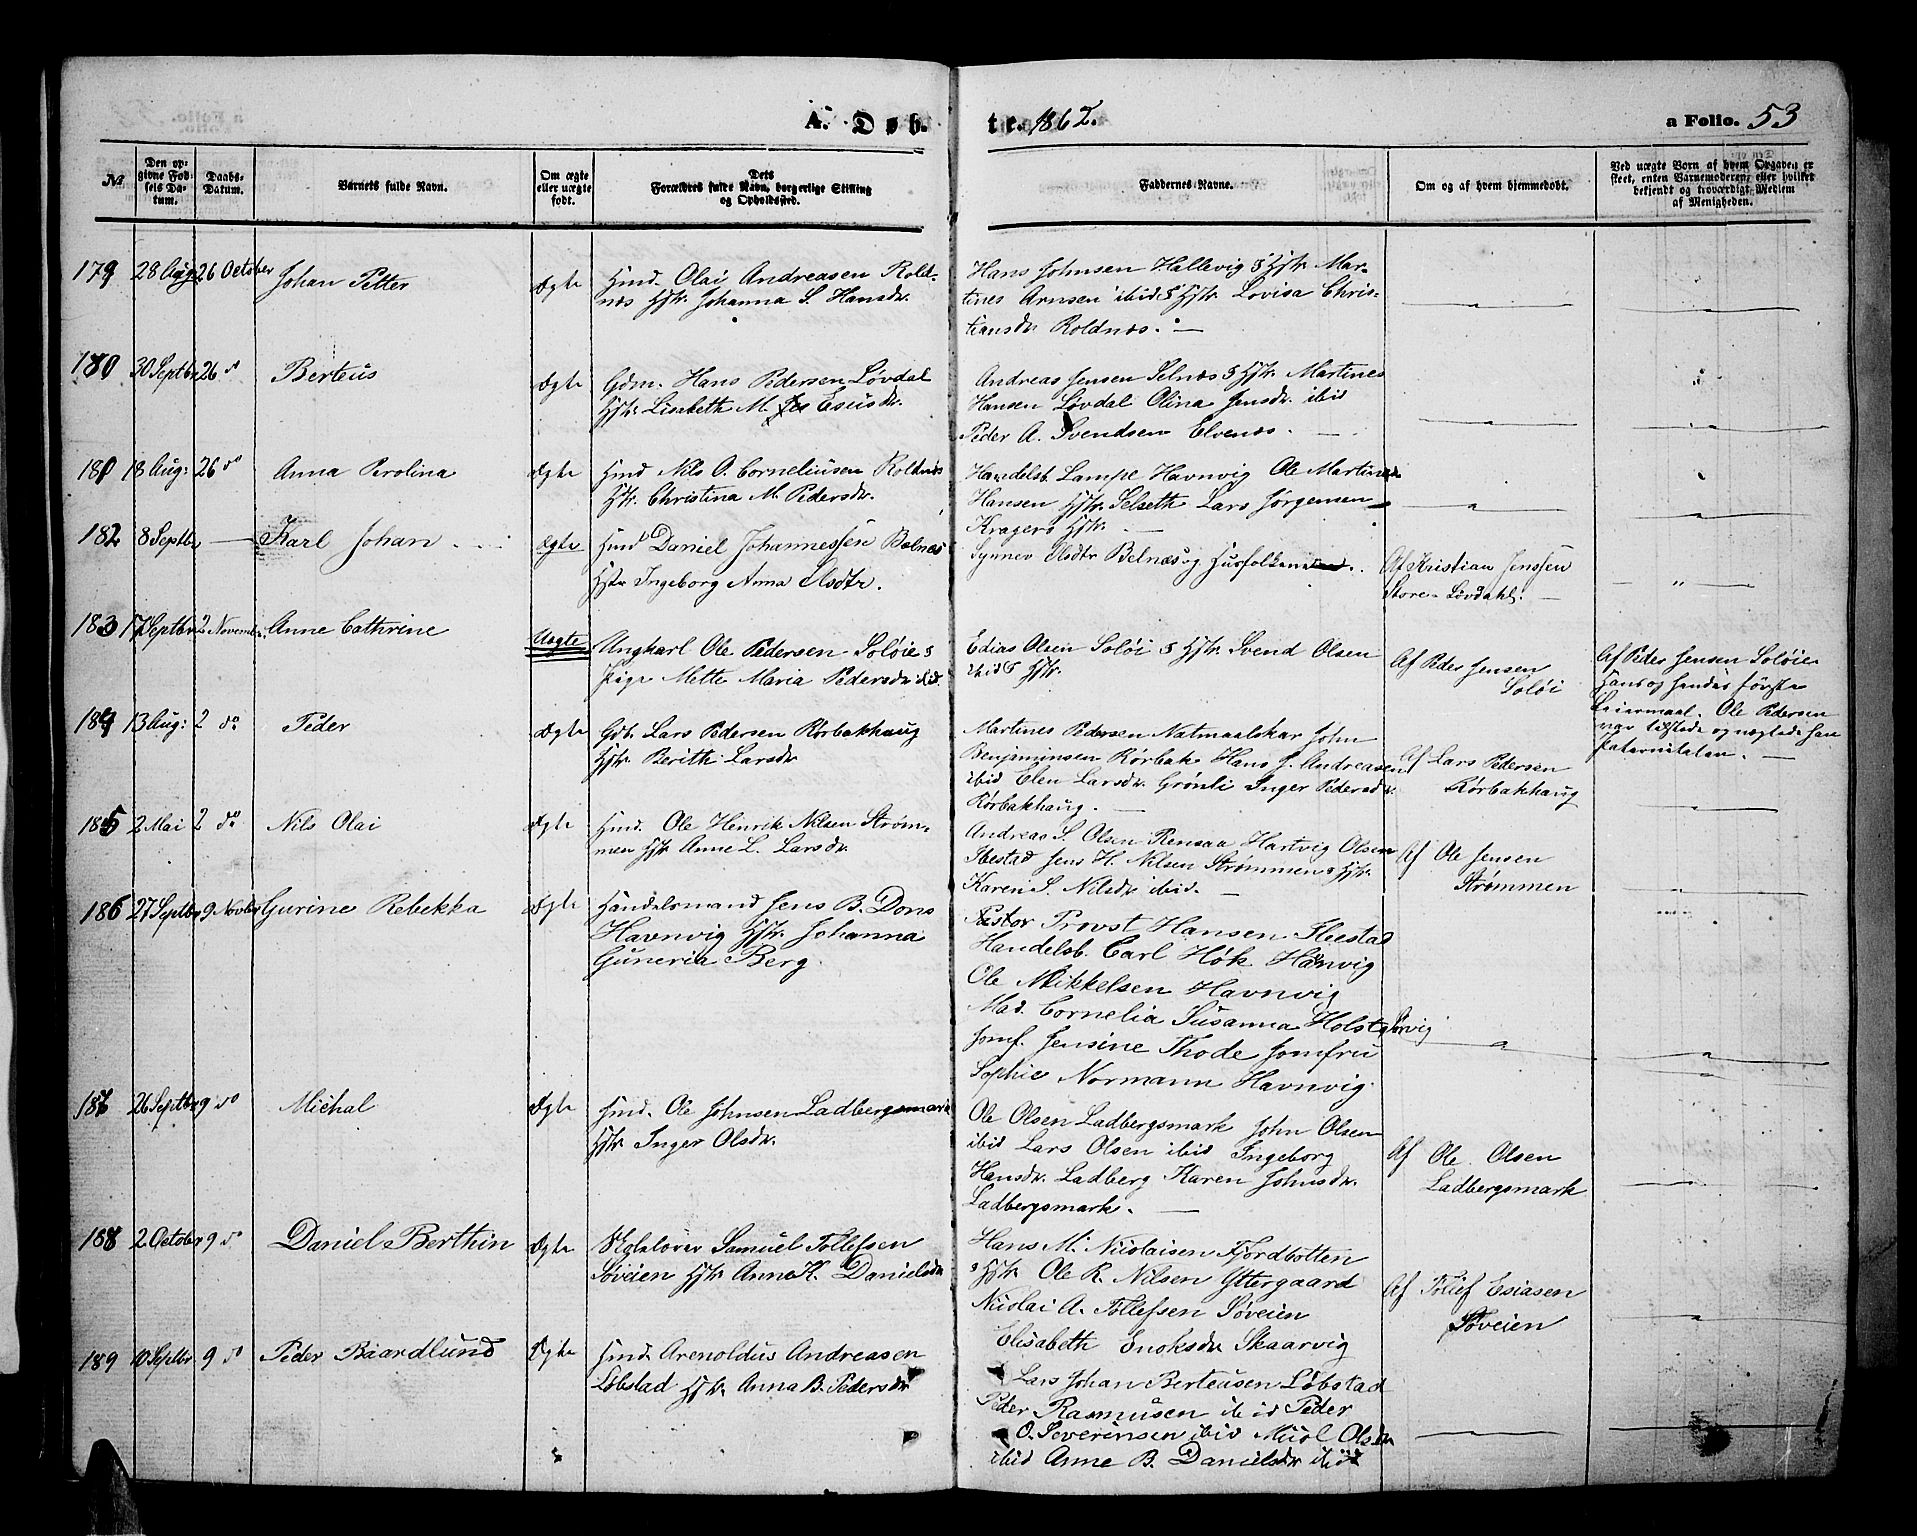 A. Døb- te. 1862. a Folio. 53
№ Den opgivne Fødsels Datum. Daabs-Datum. Barnets fulde Navn. Om ægte eller uægte født. Dets Forældres fulde Navn, borgerlige Stilling og Opholdssted. Faddernes Navne. Om og af hvem hjemmedøbt. Ved uægte Børn af hvem Opgaven er skeet, enten Barnemoderen eller hvilket bekjendt og troværdigt Medlem af Menigheden.
179 28 Aug 26 October Johan Petter Ægte Huusd. Olai Andreasen Rold-
næs Hstr Johanna S. Hansdr.
Hans Johnsen Hallevig & Hstr Mar-
tines Arnsen ibid & Hstr Lovisa Chris-
tiansdr Roldnæs. —
180 30 Septbr 26 do Berteus Ægte Gdm. Hans Pedersen Løvdal
Hstr Lisbeth M. Esiasdr.
Andreas Jensen Selnæs & Hstr Martines
Hansen Løvdal Olina Jensdr ibid
Peder A. Svendsen Elvenæs. —
181 18 Aug: 26 do Anna Perolina Ægte Huusd Nils O. Corneliusen Roldnæs
Hstr Christina M. Pedersdr.
Handelsb. Lampe Havnvig Ole Martines
Hansen Hstr Selseth Lars Jørgensen
Kragerø Hstr. —
182 8 Septbr — Karl Johan Ægte Huusd Daniel Johannessen Belnæs
Hstr Ingeborg Anna Olsdtr.
Synnev Olsdtr Belnæs og Husfolkene.
Af Kristian Jenssen
Store-Løvdahl. —
183 17 Septbr 2 Novembr. Anne Cathrine Uægte Ungkarl Ole Pedersen Soløie &
Pige Mette Maria Pedersdr ibid.
Edias Olsen Soløi & Hstr Svend Olsen
ibid & Hstr.
Af Peder Jensen
Soløi
Af Peder Jensen Soløie
Hans og hendes første
Leiermaal. Ole Pedersen
var tilstede og negtede sin
Paterniteten. —
184 13 Aug: 2 do Peder Ægte Gdb. Lars Pedersen Rørbakhaug
Hstr Berith Larsdr
Martines Pedersen Natmaalskar John
Benjaminsen Rørbak Hans J. Andreasen
ibid Elen Larsdr. Grønli Inger Pedersdr.
Rørbakhaug. —
Af Lars Pedersen
Rørbakhaug
185 2 Mai 2 do Nils Olai Ægte Huusd. Ole Henrik Nilsen Strøm-
men Hstr Anne L. Larsdr.
Andreas S. Olsen Rensaa Hartvig Olsen
Ibestad Jens H. Nilsen Strømmen & Hstr.
Karen S. Nilsdr ibid. —
Af Ole Jensen
Strømmen
186 27 Septbr 9 Novbr Gurine Rebekka Ægte Handelsmand Jens B. Dons
Havnvig Hstr. Johanna
Guneria Berg.
Pastor Provst Hansen Ibestad
Handelsb. Carl Høk Hamnvig
Ole Mikkelsen Havnvig
Mad. Cornelia Susanna Holst Sørvig
Jomf. Jensine Thode Jomfru
Sophie Normann Havnvig
187 26 Septbr 9 do Michal Ægte Huusd. Ole Johnsen Ladbergsmark
Hstr Inger Olsdr.
Ole Olsen Ladbergsmark John Olsen
ibid Lars Olsen ibid Ingeborg
Hansdr. Ladberg Karen Johnsdr.
Ladbergsmark. —
Af Ole Olsen
Ladbergsmark
188 2 October 9 do Daniel Berthin Ægte Skolelærer Samuel Tollefsen
Søveien Hstr Anna K. Danielsdr
Hans M. Nicolaisen Fjordbotten
& Hstr Ole R. Nilsen Yttergaard
Nicolai A. Tollefsen Søveien
Elisabeth Enoksdr Skaarvig
Af Tollef Esiasen
Søveien
189 10 Septbr 9 do Peder Baardlund Ægte Huusd. Arenoldus Andreasen
Løbstad Hstr. Anna B. Pedersdr
Lars Johan Berteusen Løbstad
Peder Rasmusen ibid Peder
O. Severinsen ibid Olsdr
ibid Anne B. Danielsdr ibid